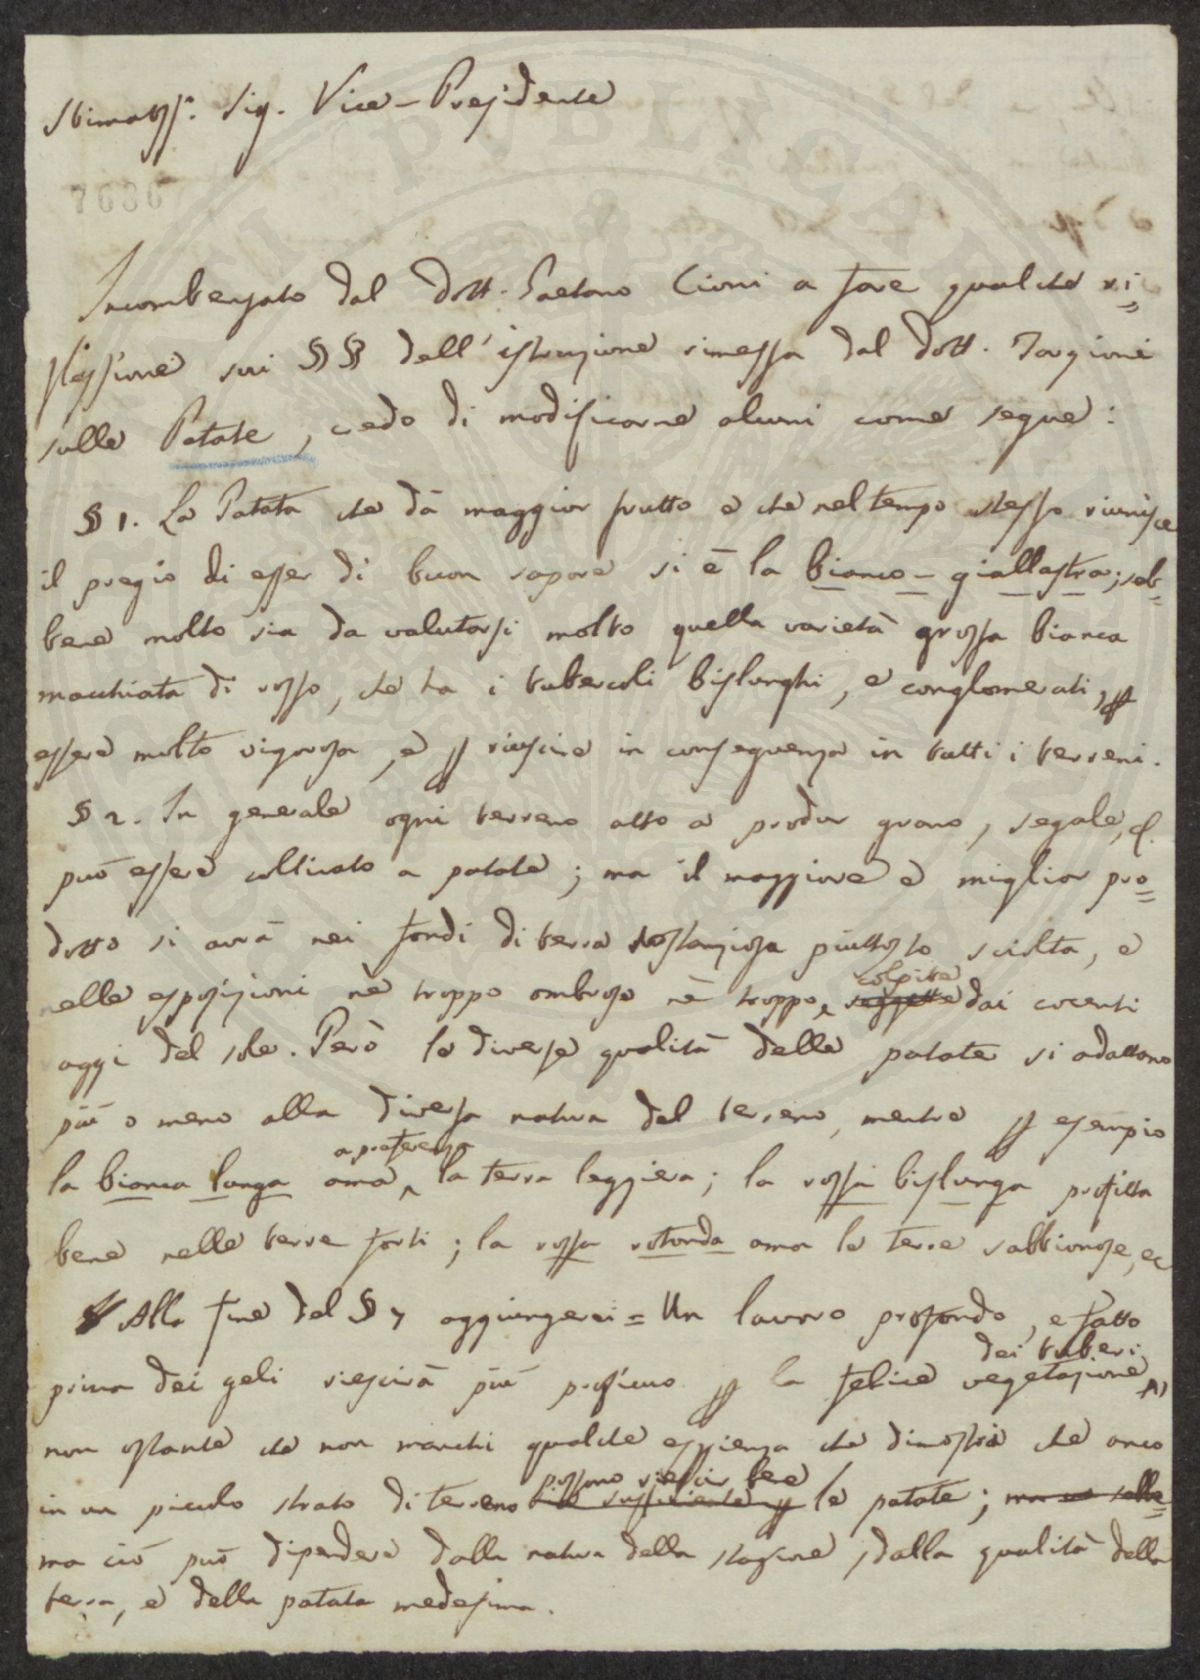 Stimatiss.º Sig. Vice-Presidente
7636
Incombenzato dal Dott. Gaetano Cioni a fare qualche ri=
flessione sui §§ dell'istruzione rimessa dal Dott. Targioni
sulle Patate, credo di modificarne alcuni come segue:
§ 1. La Patata che dà maggior frutto e che nel tempo stesso riunisce
il pregio di esser di buon sapore si è la bianco-giallastra; seb=
bene molto sia da valutarsi molto quella varietà grossa bianca
macchiata di rosso, che ha i tubercoli bislunghi, e conglomerati, p
essere molto vigorosa, e p riuscire in conseguenza in tutti i terreni.
§ 2. In generale ogni terreno atto a produr grano, segale,
può essere coltivato a patate; ma il maggiore e miglior pro=
dotto si avrà nei fondi di terra sostanziosa piuttosto sciolta, e
colpite
nelle esposizioni nè troppo ombrose nè troppo soggette dai cocenti
aggi del sole. Però le diverse qualità delle patate si adattano
più o meno alla diversa natura del terreno, mentre p esempio
a preferenza
la bianca lunga ama la terra leggiera; la rossa bislunga profitta
bene nelle terre forti; la rossa rotonda ama le terre sabbionose, ec
Alla fine del § 7 aggiungerei = Un lavoro profondo, e fatto
dei tuberi
prima dei geli riescirà più proficuo p la felice vegetazione
non ostante che non manchi qualche esperienza che dimostri che anco
possono riescir bene
in un piccolo strato di terreno le patate;
ma ciò può dipendere dalla natura della stagione, dalla qualità della
terra, e della patata medesima.